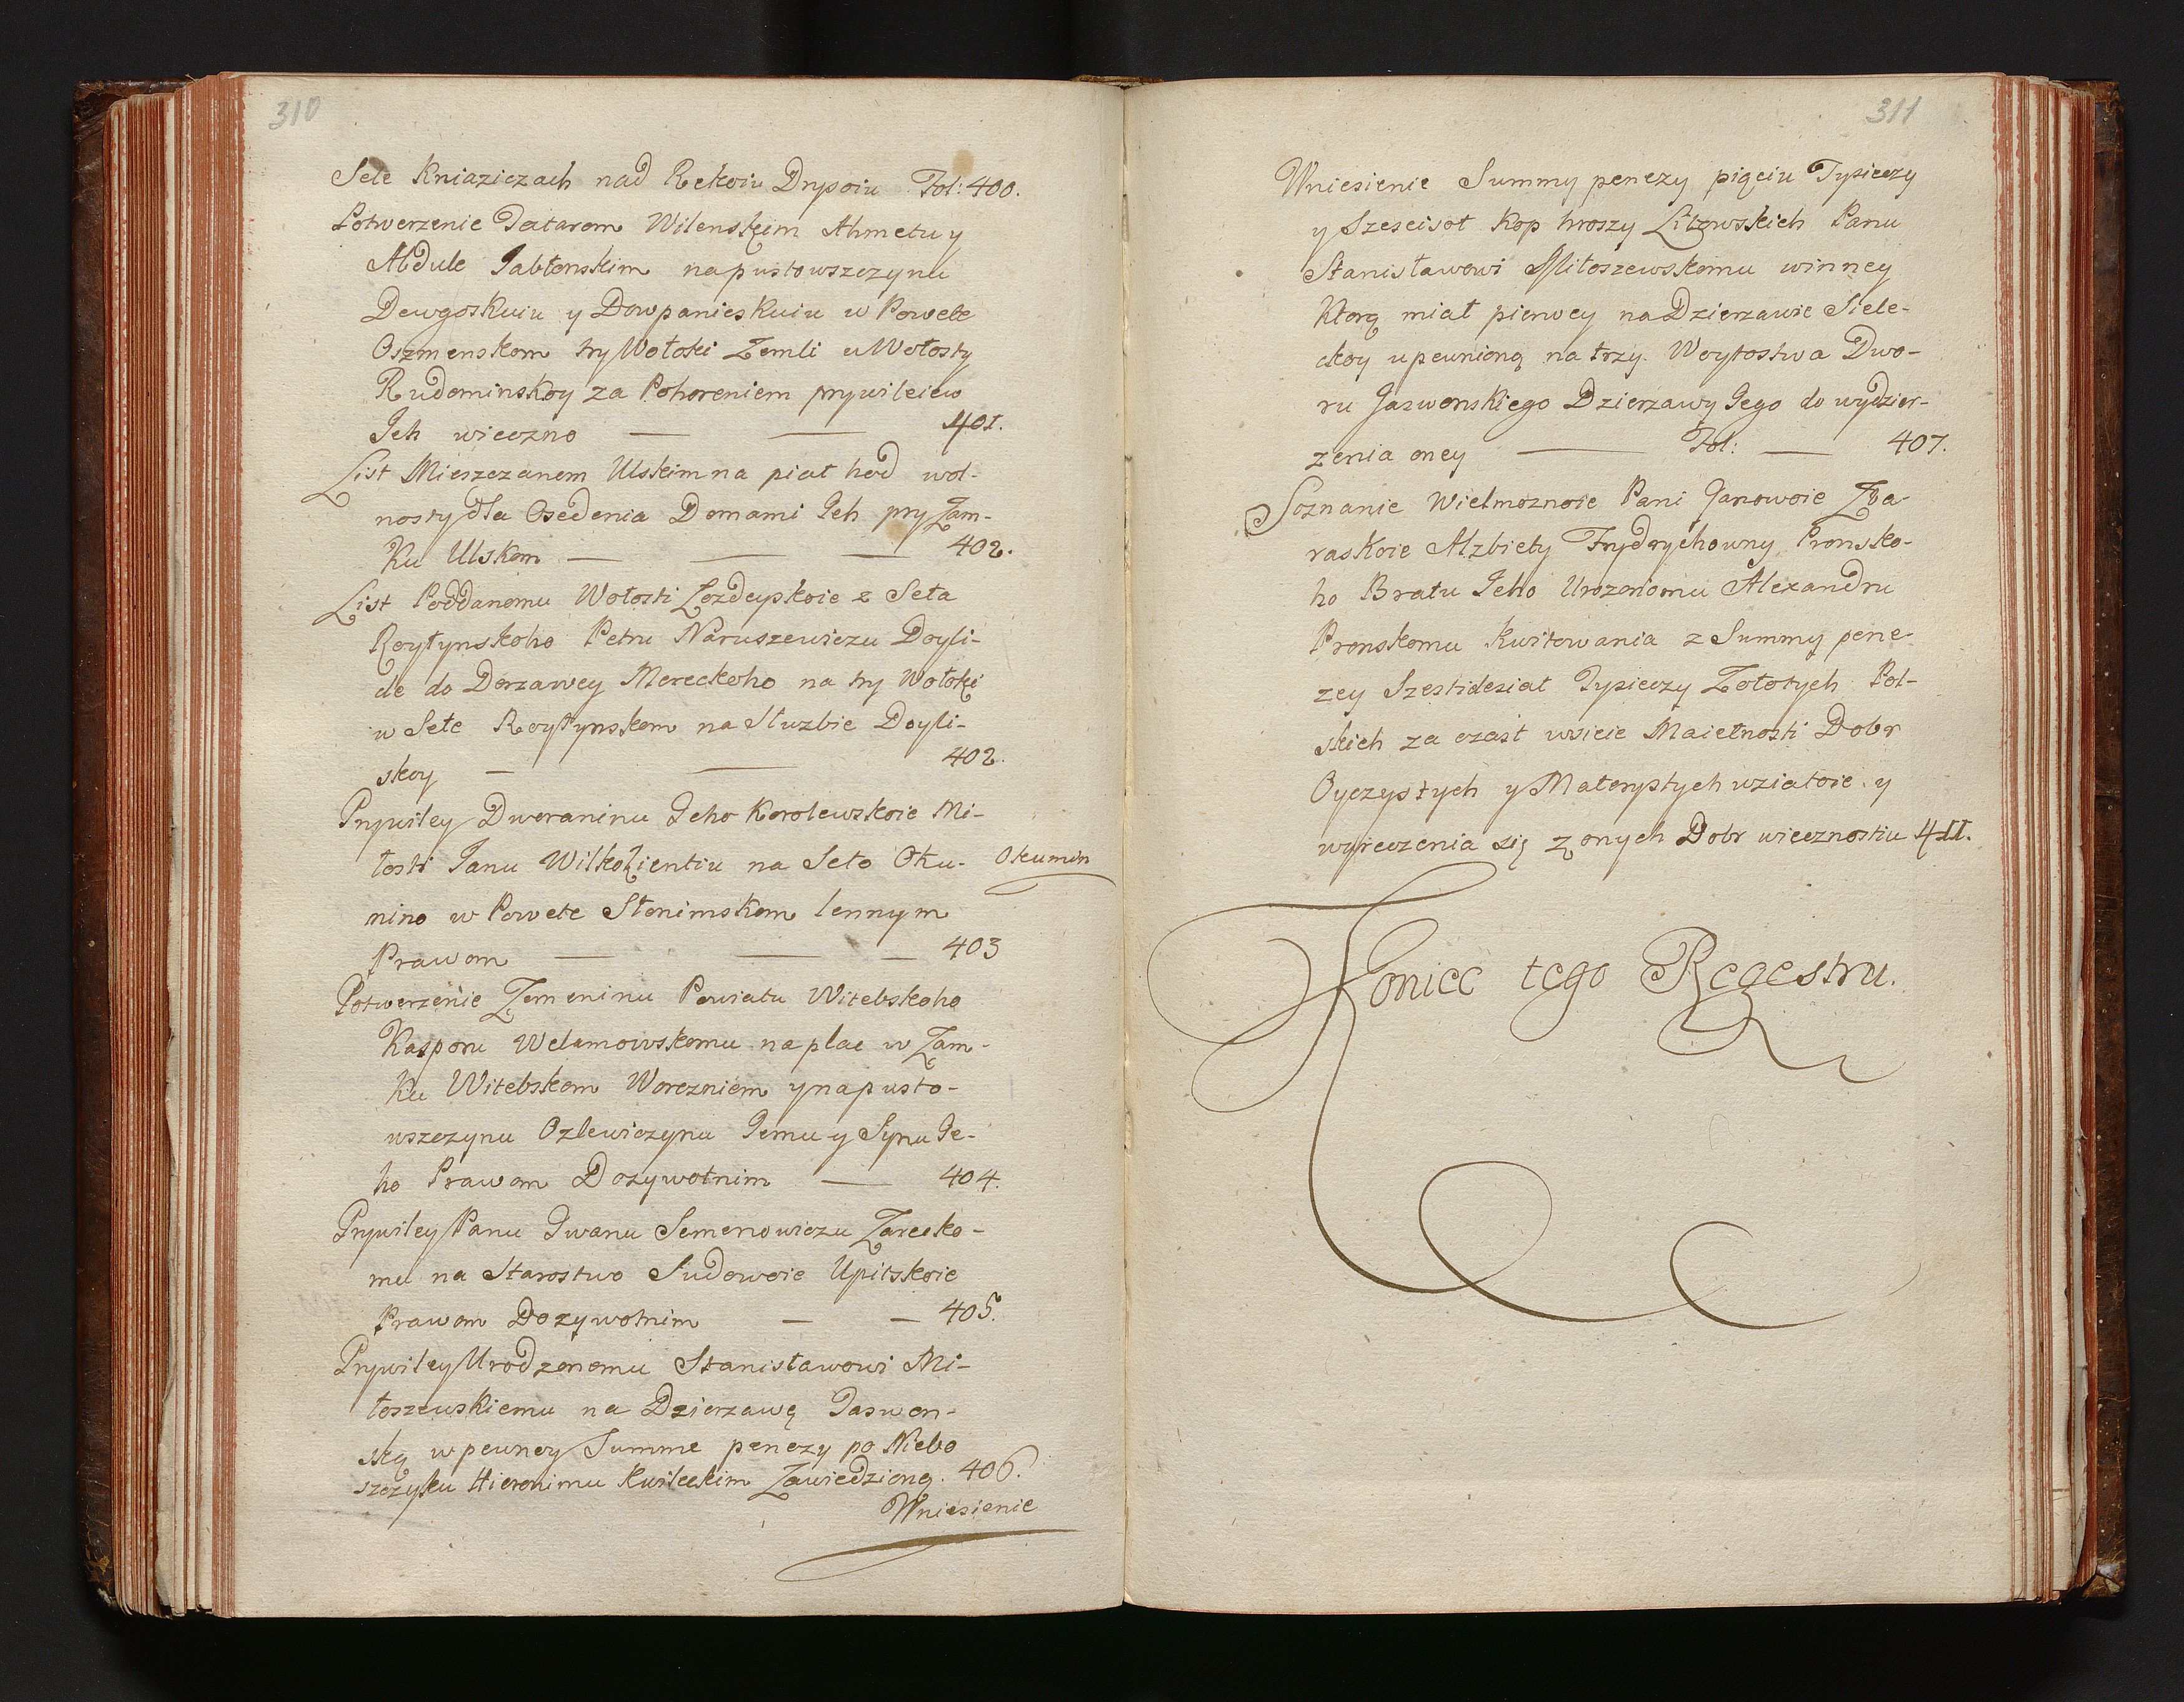 310
Sele Kniaziczach nad Rekoiu Drysoiu Fol: 400.
Potwerzenie Tatarom Wilenskim Ahmetu y
Abdule Jabłonskim na pustowszczynu
Dewgoskuiu y Dowpanieskuiu w Powete
Oszmenskom try Wołoki Zemli u Wołosty
Rudominskoy za Pohoreniem prywileiew
Jch wieczno — — 401.
List Mieszczanom Ulskim na piat hod wol-
nosty dla Osedenia Domami Jch pry Zam-
ku Ulskom — — — 402.
List Poddanomu Wołosti Lozdeyskoie z Seła
Roytynskoho Petru Naruszewiczu Doyli-
de do Derzawey Mereckoho na try Wołoki
w Sele Roytynskom na Służbie Doyli-
skoy — — 402.
Prywiley Dworaninu Jeho Korolewskoie Mi-
łosti Janu Wilkolientiu na Seło Oku- Okumin
nino w Powete Słonimskom lennym
Prawom — — — 403
Potwerzenie Zemeninu Powiatu Witebskoho
Kasporu Welamowskomu na plac w Zam-
ku Witebskom Worezniem y na pusto-
wszczynu Ozlewiczynu Jemu y Synu Je-
ho Prawom Dozywotnim — 404.
Prywiley Panu Iwanu Semenowiczu Zarecko-
mu na Starostwo Sudowoie Upitskoie
Prawom Dozywotnim — — 405.
Prywiley Urodzonomu Stanisławowi Mi-
łoszewskiemu na Dzierzawę Jaswon-
ską w pewney Summe penezy po Niebo
szczyku Hieronimu Kwileckim Zawiedzioną. 406.
Wniesienie
311
Wniesienie Summy penezy pięciu Tysieczy
y Szescisot Kop hroszy Litowskich Panu
Stanisławowi Miłoszewskomu winney
Ktorą miał pierwey na Dzierzawie Siele-
ckoy upewnioną na trzy Woytostwa Dwo-
ru Jaswonskiego Dzierzawy Jego do wydzier-
zenia oney — Fol: — 407.
Soznanie Wielmoznoie Pani Janowoie Zba-
raskoie Alzbiety Frydrychowny Pronsko-
ho Bratu Jeho Urozonomu Alexandru
Pronskomu kwitowania z Summy pene-
zey Szestidesiat Tysieczy Zołotych Pol-
skich za czast wsieie Maietnosti Dobr
Oyczystych y Materystych wziatoie y
wyreczenia się z onych Dobr wiecznostiu 411.
Koniec tego Regestru.